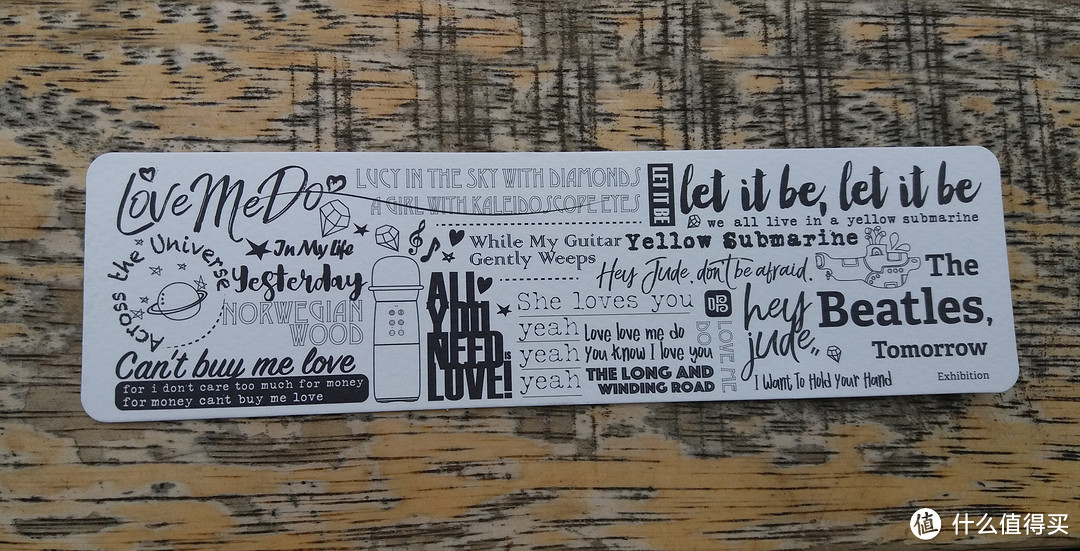 Love Me Do
LUCY IN THE SKY WITH DIAMONDS
A GIRL WITH KALEIDOSCOPE EYES
LET IT BE
let it be, let it be
we all live in a yellow submarine
Across the Universe
In My Life
Yesterday
NORWEGIAN
WOOD
Can't buy me love
for i dont care too much for money
for money cant buy me love
While My Guitar
Gently Weeps
Yellow Submarine
Hey Jude, don't be afraid.
ALL
YOU
NEED IS
LOVE!
She loves you
yeah
yeah
yeah
love love me do
you know I love you
THE LONG AND
WINDING ROAD
LOVE ME
DO
hey
jude,,
I Want To Hold Your Hand
The
Beatles,
Tomorrow
Exhibition
值 什么值得买